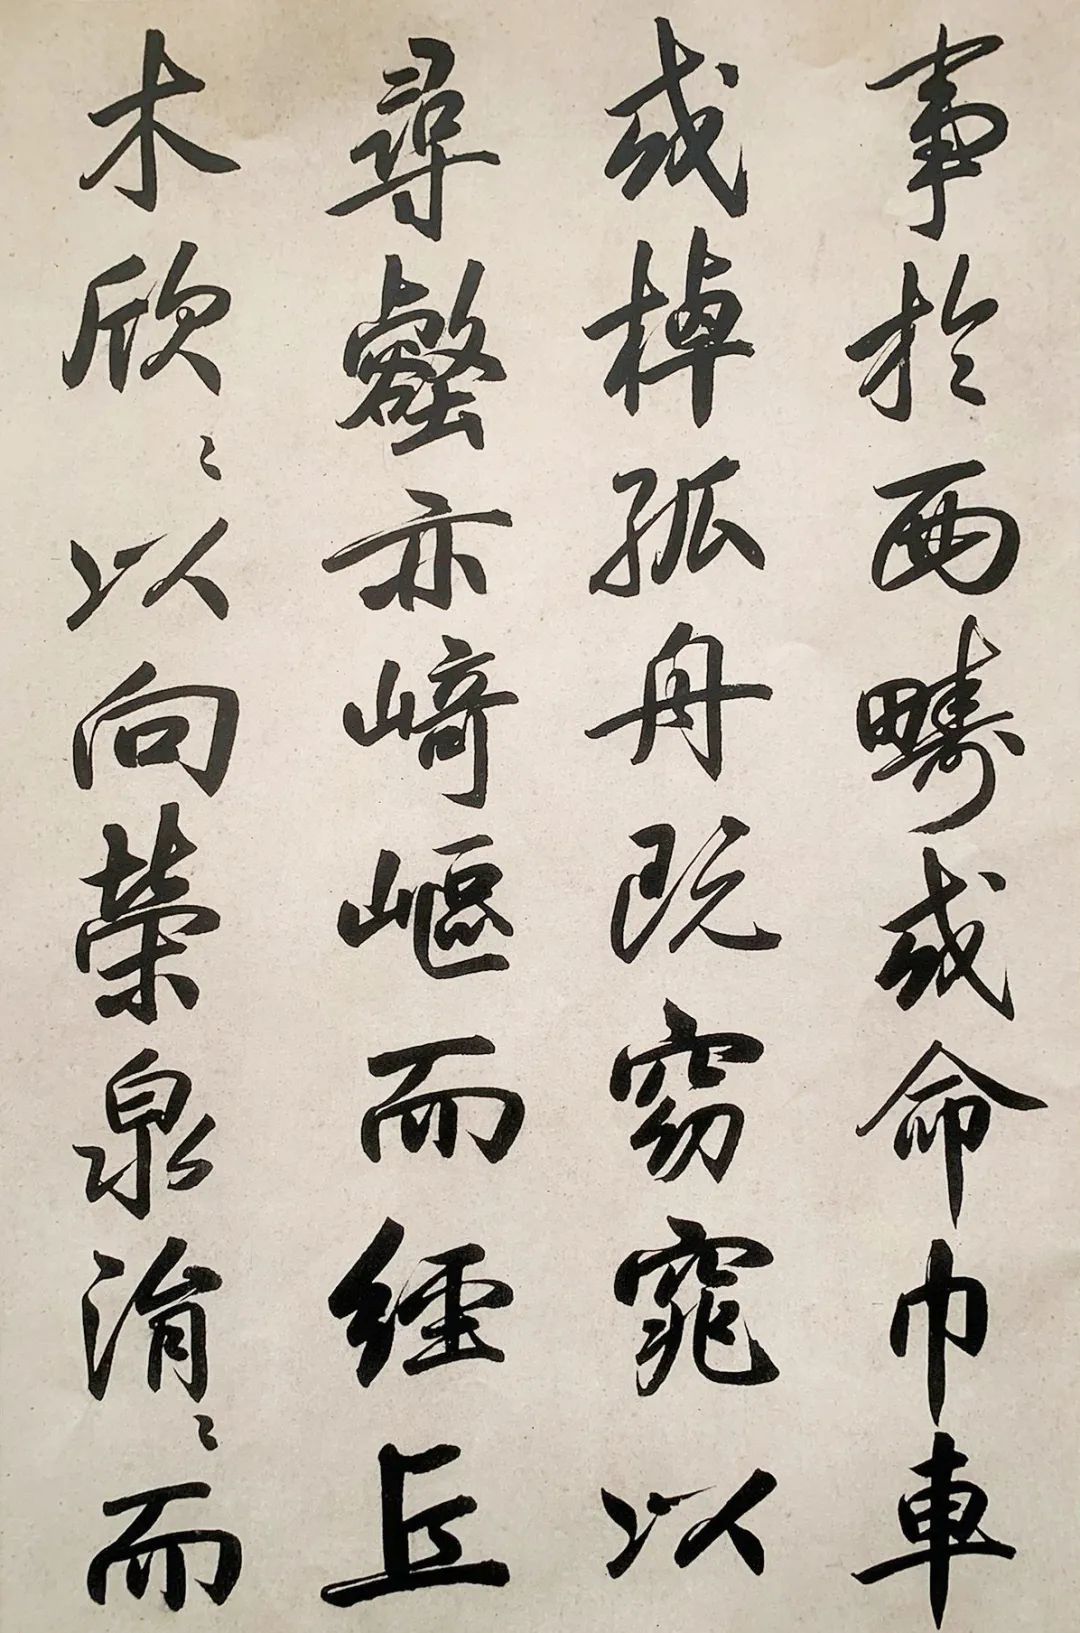 事於西疇或命巾車
或棹孤舟既窈窕以
尋壑亦崎嶇而經丘
木欣〻以向榮泉涓〻而